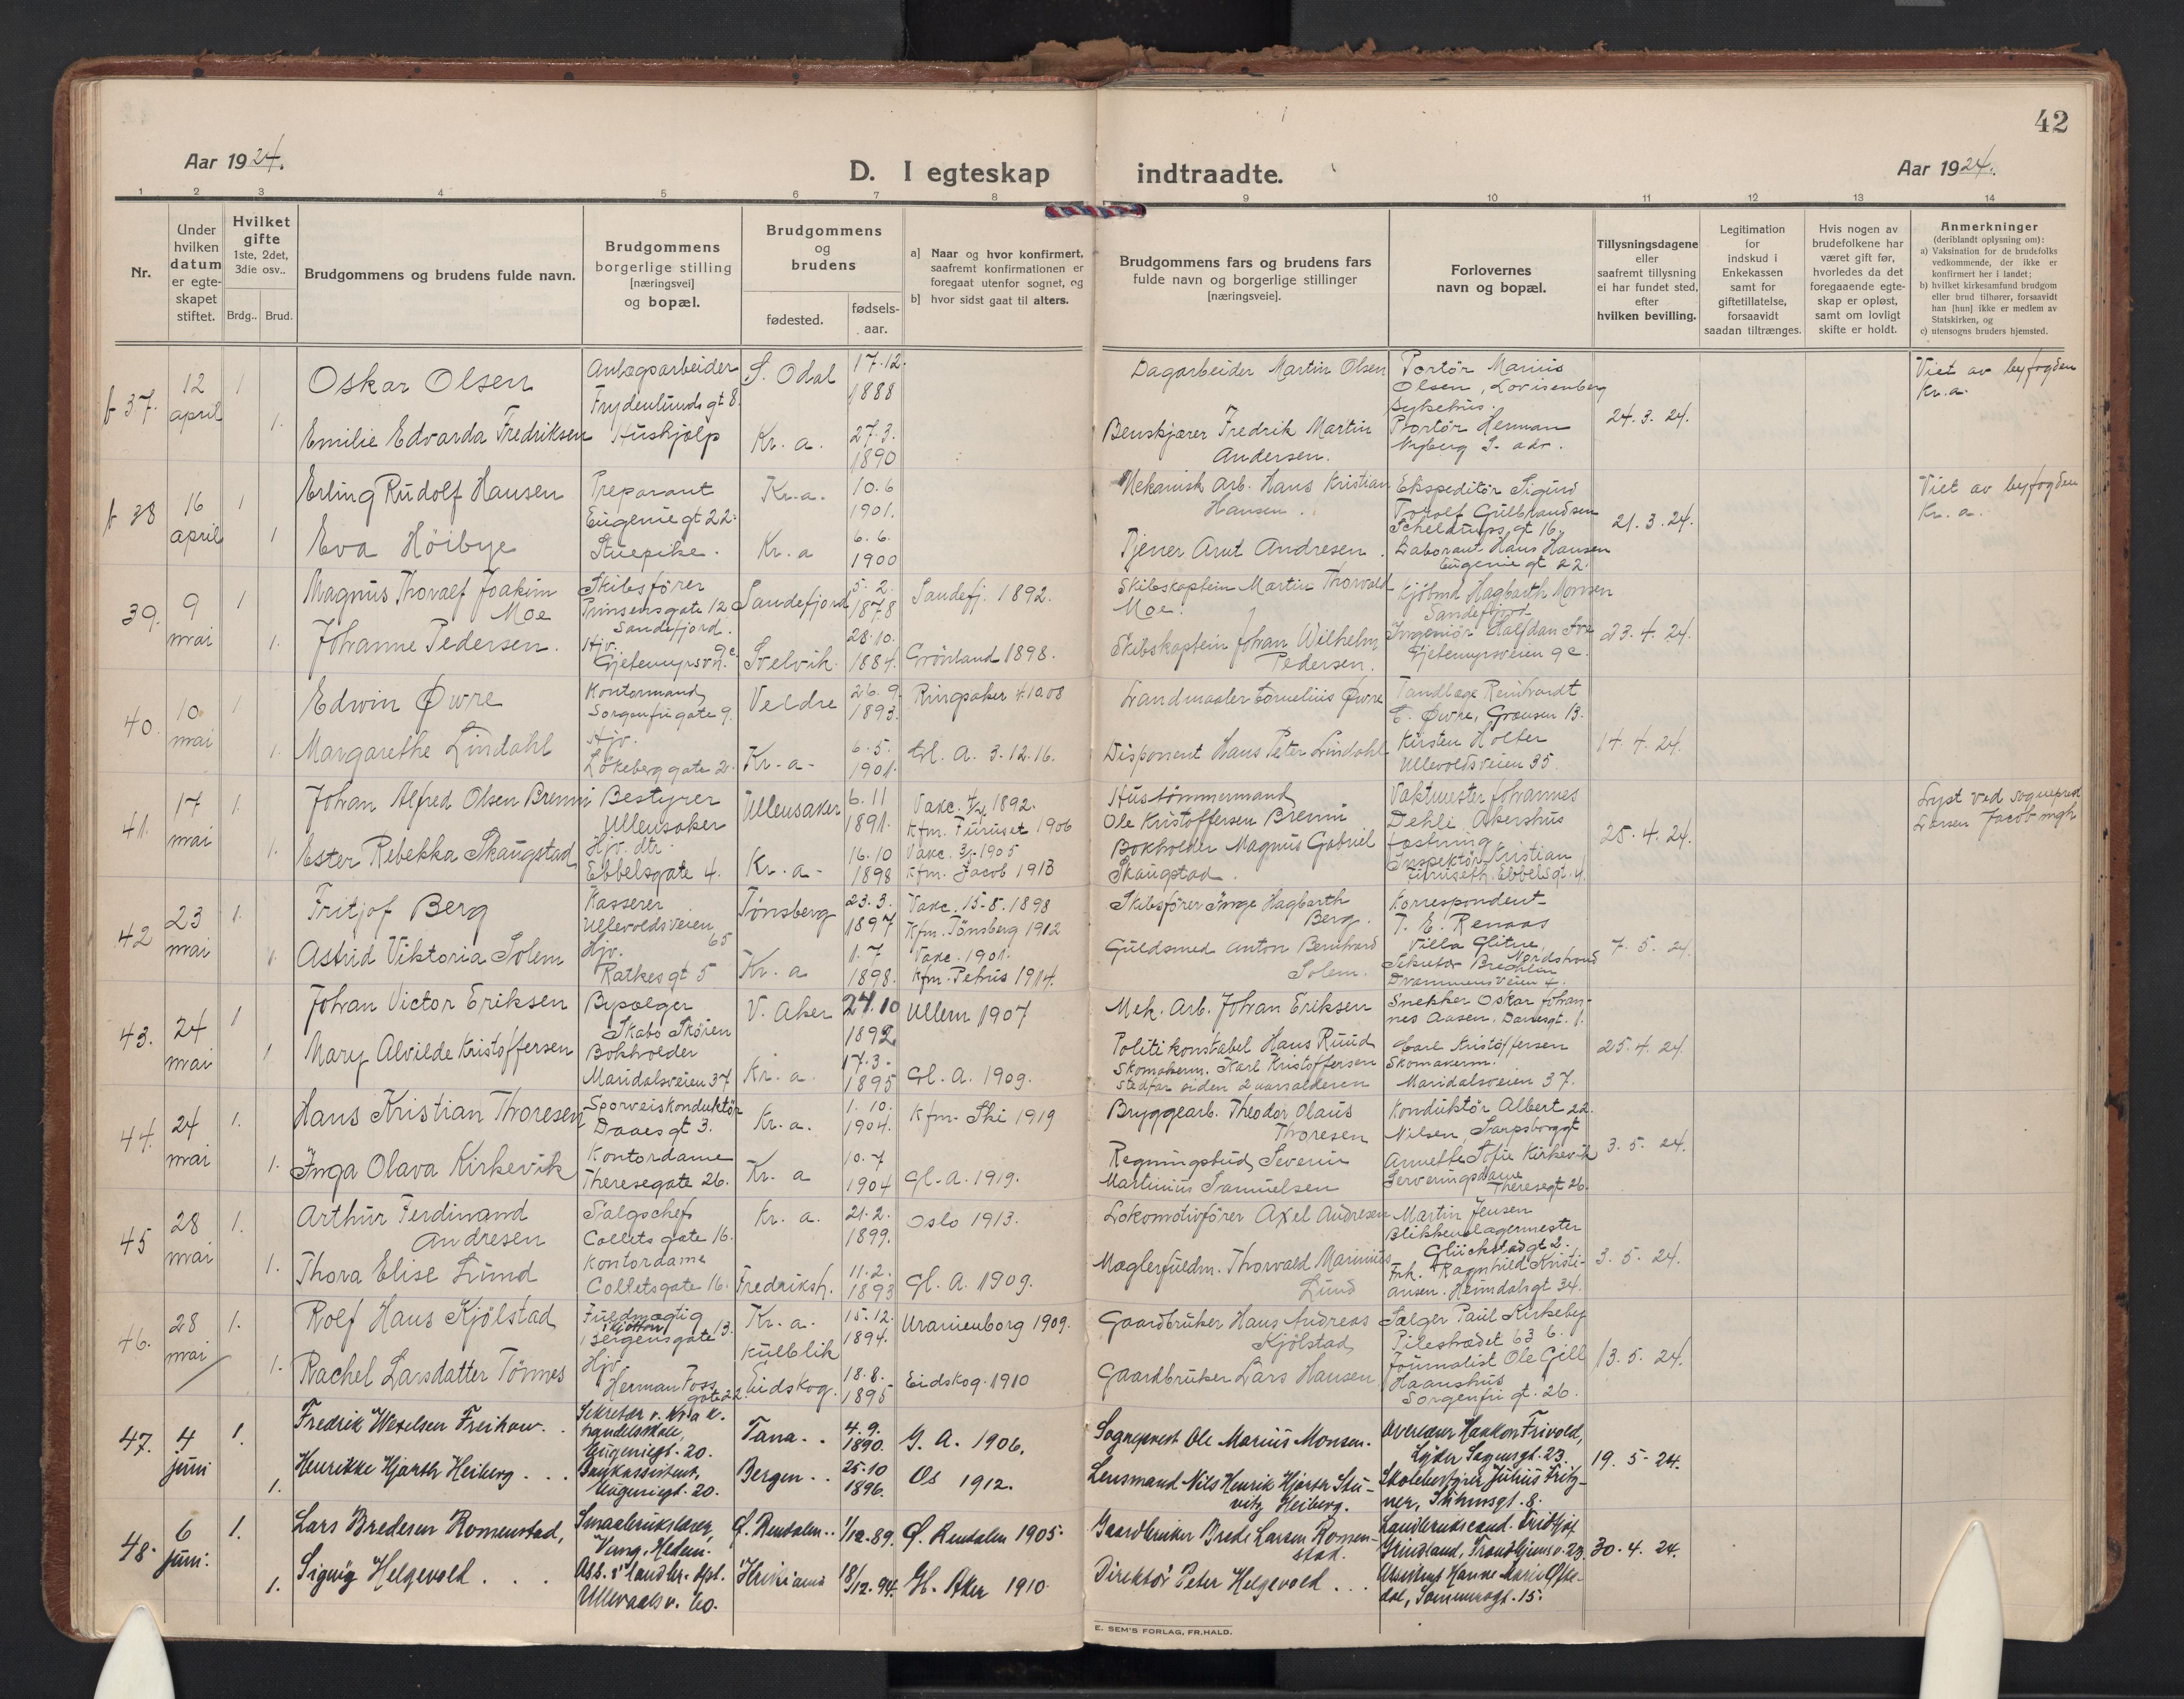 42
Aar 1924.
D. I egteskap indtraadte.
Aar 1924.
1 2 3 4 5 6 7 8 9 10 11 12 13 14
Nr.
Under hvilken datum er egteskapet stiftet.
Hvilket gifte 1ste, 2det, 3die osv..
Brdg.. Brud.
Brudgommens og brudens fulde navn.
Brudgommens borgerlige stilling [næringsvei] og bopæl.
Brudgommens og brudens
fødested.
fødsels-aar.
a] Naar og hvor konfirmert, saafremt konfirmationen er foregaat utenfor sognet, og
b] hvor sidst gaat til alters.
Brudgommens fars og brudens fars fulde navn og borgerlige stillinger [næringsveie].
Forlovernes navn og bopæl.
Tillysningsdagene eller saafremt tillysning ei har fundet sted, efter hvilken bevilling.
Legitimation for indskud i Enkekassen samt for giftetillatelse, forsaavidt saadan tiltrænges.
Hvis nogen av brudefolkene har været gift før, hvorledes da det foregaaende egteskap er opløst, samt om lovligt skifte er holdt.
Anmerkninger (deriblandt oplysning om):
a) Vaksination for de brudefolks vedkommende, der ikke er konfirmert her i landet;
b) hvilket kirkesamfund brudgom eller brud tilhører, forsaavidt han [hun] ikke er medlem av Statskirken, og
c) utensogns bruders hjemsted.
37. 12 april 1 Oskar Olsen Anlægsarbeider Frydenlunds gt 8. S. Odal 17.12. 1888 Dagarbeider Martin Olsen Portör Marius Olsen, Lovisenberg Sykehus. 24.3.24. Viet av byfogden Kr.a.
1. Emilie Edvarda Fredriksen Hushjælp Kr.a. 27.3. 1890 Benskjærer Fredrik Martin Andersen. Portör Herman Nyberg S. adr.
38 16 april 1 Erling Rudolf Hansen Preparant Eugenie gt 22. Kr.a. 10.6 1901. Mekanisk Arb. Hans Kristian Hansen. Ekspeditör Sigurd Torolf Gulbrandsen Scheldrups gt 16. 21.3.24. Viet av byfogden Kr.a.
1 Eva Höibye Stuepike. Kr.a 6.6. 1900 Tjener Arnt Andresen. Laborant Hans Hansen Eugenie gt 22.
39. 9 mai 1 Magnus Thoralf Joakim Moe Skibsförer Prinsensgate 12 Sandefjord. Sandefjord 5.2. 1878 Sandefj. 1892. Skibskaptein Martin Thorvald Moe. Kjöbmd Hagbarth Monsen Sandefjord 23.4.24.
1. Johanne Pedersen. Hjv. Gjetemyrsvn. 9c Svelvik 28.10. 1884. Grönland 1898. Skibskaptein Johan Wilhelm Pedersen. Ingeniör Halfdan Gjetemyrsveien 9c.
40. 10 mai 1 Edwin Øvre Kontormand, Sorgenfrigate 9. Veldre 26.9. 1893. Ringsaker 4.10.08 Landmaaler Cornelius Øvre Tandlæge Reinhardt E. Øvre, Grænsen 13. 14.4.24.
1. Margarethe Lindahl Hjv. Lökeberg gate 2. Kr.a. 6.5. 1901. Gl. A. 3.12.16. Disponent Hans Peter Lindahl Kirsten Holter Ullevoldsveien 35.
41. 17 mai 1. Johan Alfred Olsen Brenni Bestyrer Ullensaker Ullensaker 6.11 1891. Vakc. 1892. Kfm. Furuset 1906 Hustömmermand, Ole Kristoffersen Brenni Vaktmester Johannes Dehli Akershus fæstning 25.4.24. Lyst ved sogneprest Larsen Jacob mgh
1. Ester Rebekka Skaugstad Hjv. dtr. Ebbelsgate 4. Kr.a. 16.10 1898 Vakc. 3/5 1905 Kfm. Jacob 1913 Bokholder Magnus Gabriel Skaugstad. Inspektör Kristian Furuseth. Ebbelsgt. 4.
42 23 mai 1. Fritjof Berg Kasserer Ullevoldsveien 65 Tønsberg 23.3. 1897 Vakc. 15-8.1898 Kfm. Tønsberg 1912 Skibsförer Inge Hagbarth Berg. Korrespondent T. E. Renaas Villa Glitne, Nordstrand 7.5.24
1. Astrid Viktoria Solem Hjv. Ratkes gt 5 Kr.a 1.7 1898. Vakc. 1901. Kfm. Petrus 1914. Guldsmed Anton Bernhard Solem. Sekretær Drammensveien 4.
43. 24 mai 1 Johan Victor Eriksen Bypælger Skabo Skøien V. Aker 24.10 1892 Ullern 1907 Mek. Arb. Johan Eriksen Snekker Oskar Johannes Aasen. Daaesgt. 1. 25.4.24.
1 Mary Alvilde Kristoffersen Bokholder Maridalsveien 37 Kr.a. 17.3. 1895 Gl. A. 1909. Politikonstabel Hans Ruud Skomakerm. Karl Kristoffersen stedfar siden 2 aarsalderen Carl Kristoffersen Skomakerm. Maridalsveien 37.
44. 24 mai 1. Hans Kristian Thoresen Sporveiskonduktör Daaes gt 3. Kr.a. 1.10. 1904. Kfm. Ski 1919 Bryggearb. Theodor Olaus Thoresen Konduktör Albert Nilsen, Sarpsborggt 22. 3.5.24.
1. Inga Olava Kirkevik Kontordame Theresegate 26. Kr.a 10.7 1904 Gl. A. 1919. Regningsbud, Severin Martinius Samuelsen Annette Sofie Kirkevik Serveringsdame Theresegt 26.
45 28 mai 1. Arthur Ferdinand Andresen Salgschef Collets gate 16. Kr.a. 21.2. 1899. Oslo 1913. Lokomotivförer Axel Andresen Martin Jensen Blikkenslagermester Glückstadgt 2. 3.5.24.
1. Thora Elise Lund Kontordame Colletsgate 16. Fredriksh. 11.2. 1893 Gl. A. 1909. Mæglerfuldm. Thorvald Marinius Lund Frk. Ragnhild Kristiansen. Heimdalsgt 34.
46. 28 mai 1. Rolf Hans Kjölstad Fuldmægtig Bergensgate 13. Kr.a. 15.12. 1894. Uranienborg 1909. Gaardbruker Hans Andreas Kjölstad, Sælger Paul Kirkeby Pilestrædet 63 b. 13.5.24.
1. Rachel Larsdatter Tönnes Hjv. Herman Foss gate 22. Eidskog. 18.8. 1895 Eidskog. 1910 Gaardbruker Lars Hansen Journalist Ole Gill Haanshus Sorgenfri gt. 26.
47. 4 juni 1. Fredrik Wexelsen Freihow. Sekretær v. Kr.a k. handelsskole, Eugeniegt. 20. Tana.. 4.9. 1890. G. A. 1906. Sogneprest Ole Marius Monsen. Overlærer Haakon Frivold, Lyder Sagensgt. 23. 19.5-24.
1. Henrikke Hjorth Heiberg... Bankassistent, Eugeniegt. 20. Bergen.. 25.10 1896. Os 1912. Lensmand Nils Henrik Hjorth Stuvitz Heiberg. Skolebestyrer Julius Fritzner, Stensgt. 8.
48. 6 juni. 1. Lars Bredesen Romenstad, Smaabrukslærer, Vang, Hedem. Ø. Rendalen.. 1/12.89. Ø. Rendalen 1905. Gaardbruker Brede Larsen Romenstad. Landbrukscand. Fridtjof Grindland, Trondhjemsv. 23. 30.4.24.
1. Signy Helgevold... Ass. i landbr. dpt. Ullevaalsv. 60. Kristiania 18/12.94. Gl. Aker 1910. Direktör Peter Helgevold... Assistent Hanne Marie Oftedal, Sommerrogt. 15.
E. SEM'S FORLAG, FR.HALD.